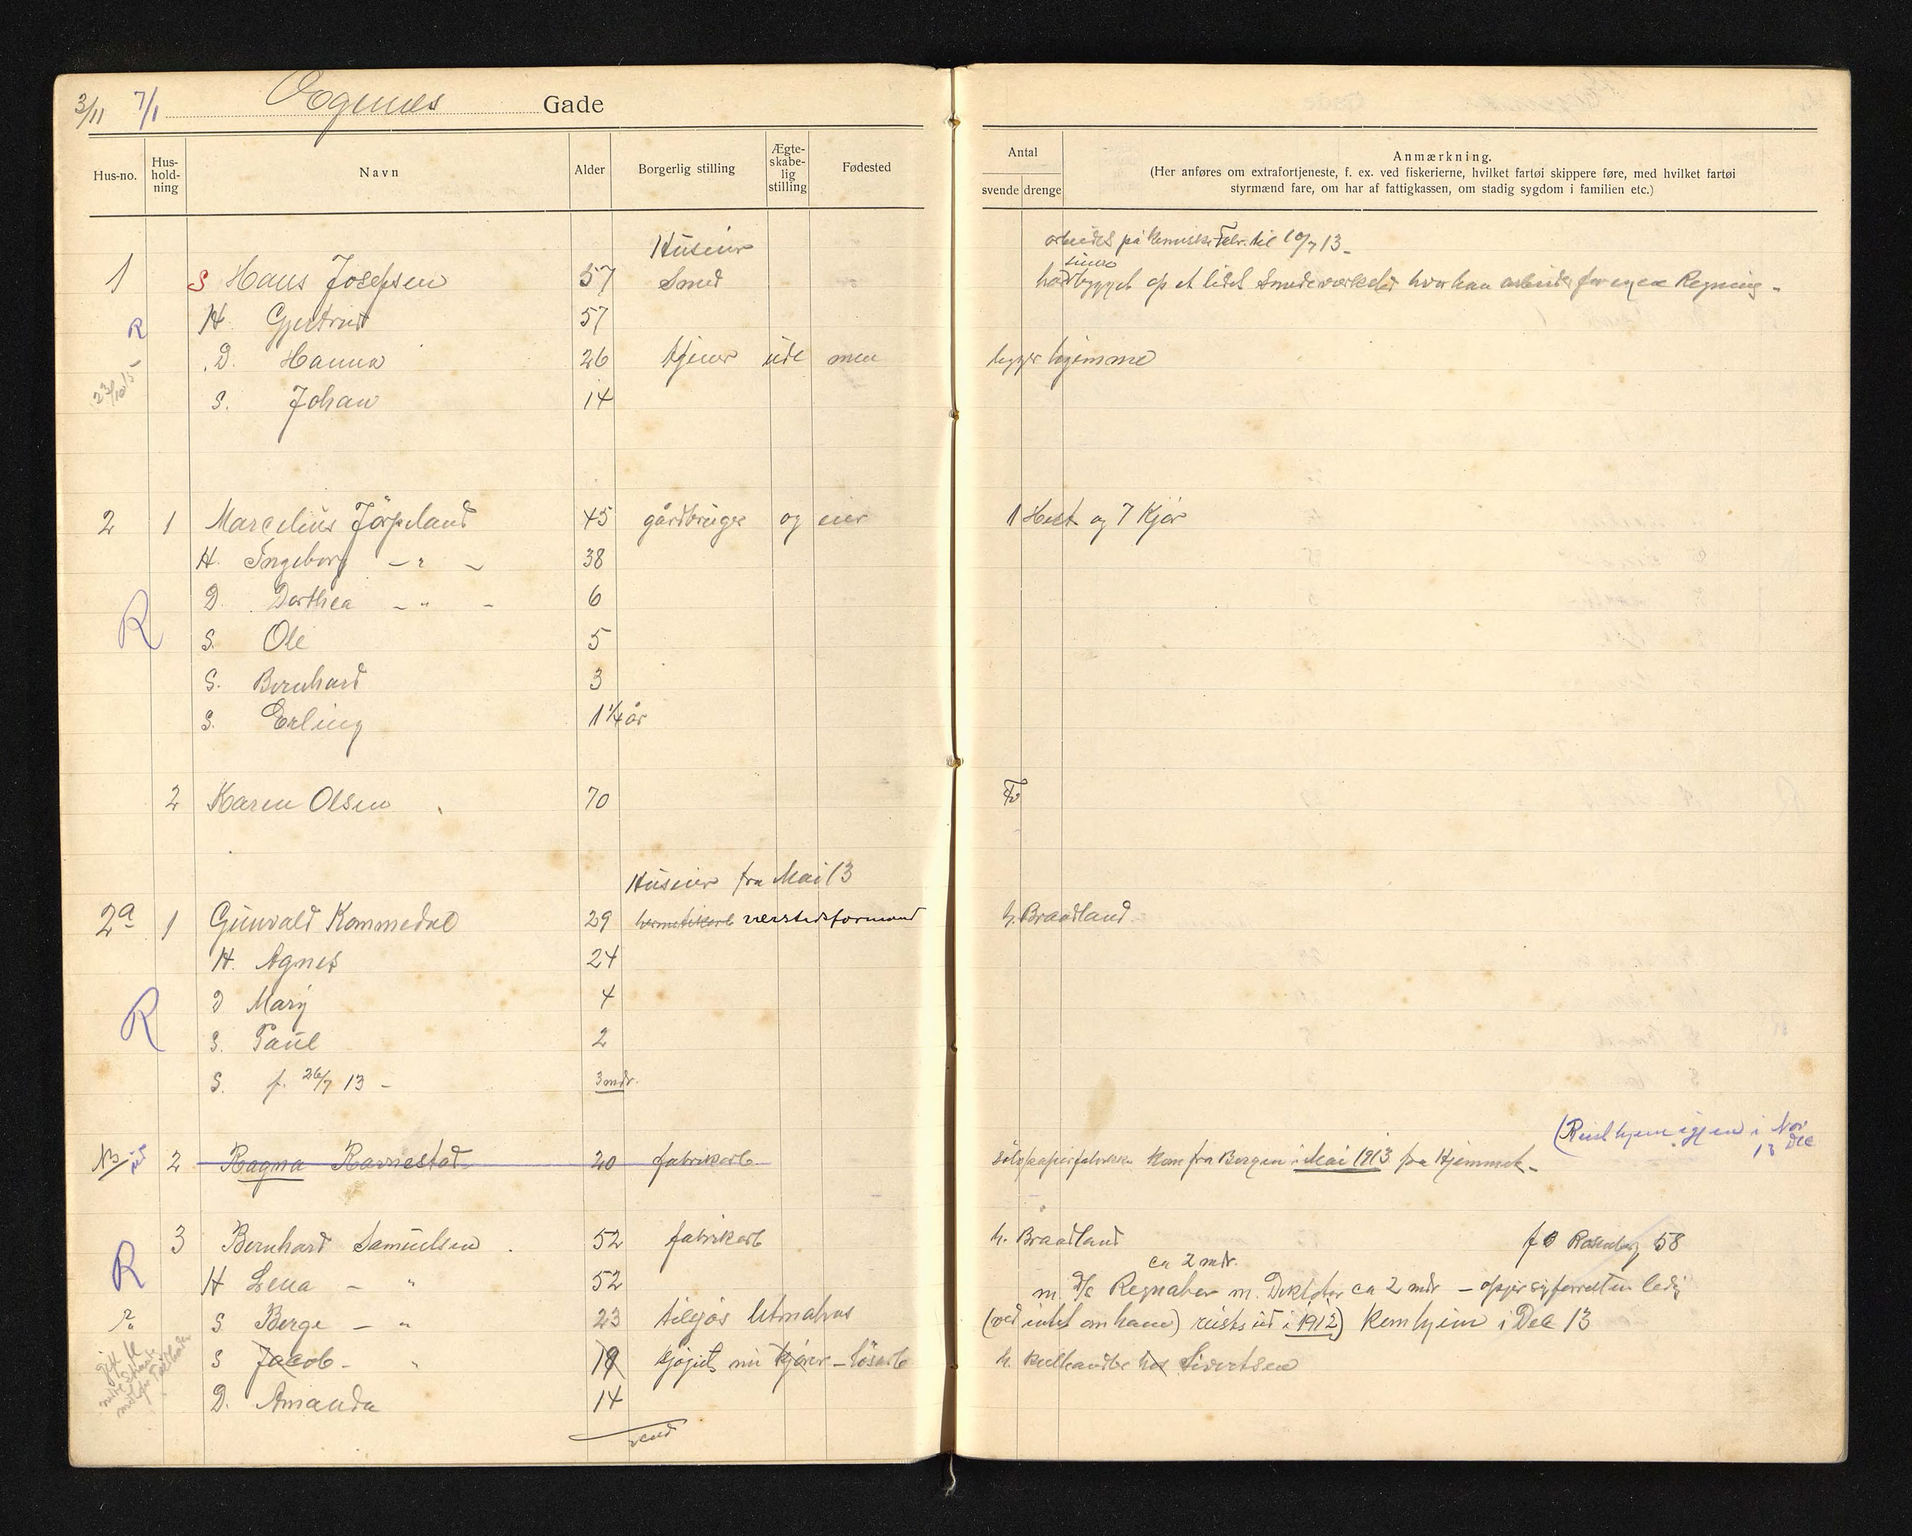 3/11 7/1 Gade
Hus-no. Hus-hold-ning Navn Alder Borgerlig stilling Ægte-skabe-lig stilling Fødested
Antal svende drenge
Anmærkning.
(Her anføres om extrafortjeneste, f. ex. ved fiskerierne, hvilket fartøi skippere føre, med hvilket fartøi
styrmænd fare, om har af fattigkassen, om stadig sygdom i familien etc.)
Huseier
arbeidet på til 10/7 13 -
1 S Hans Josefsen 57 Smed
har bygget op et lidet hvor han arbeider for egen Regning -
R H. Gjertrud 57
D. Hanna 26 tjener ude men ligger hjemme
S. Johan 14
2 1 Marcelius Jörpeland 45 gårdbruger og eier 1 Hest og 7 Kjör
H. Ingeborg - " - 38
D. Dorthea - " - 6
R S. Ole 5
S. Bernhard 3
S. Erling 1 1/4 år
2 Karen Olsen 70
Huseier fra Mai 13
2a 1 Gunvald Kommedal 29 h. Braadland
H. Agnes 24
D Mary 4
R S. Paul 2
S. f. 26/7 13 - 3 mdr.
(Reist hjem igjen i Nov
13 Dec
2 Ragna Ravnestad 20 fabrikarb. kom fra Bergen i Mai 1913 fra Hjemmet -
3 Bernhard Samuelsen 52 fabrikarb h. Braadland f B Rosenberg 58
ca 2 mdr.
R H Lena - " 52 m. D/S m. ca 2 mdr - ledig
S Berge - " 23 (ved intet om ham) reiste ud i 1912) Kom hjem i Dec 13
S Jacob - " 19 h. Sivertsen
D. Amanda 14
vend